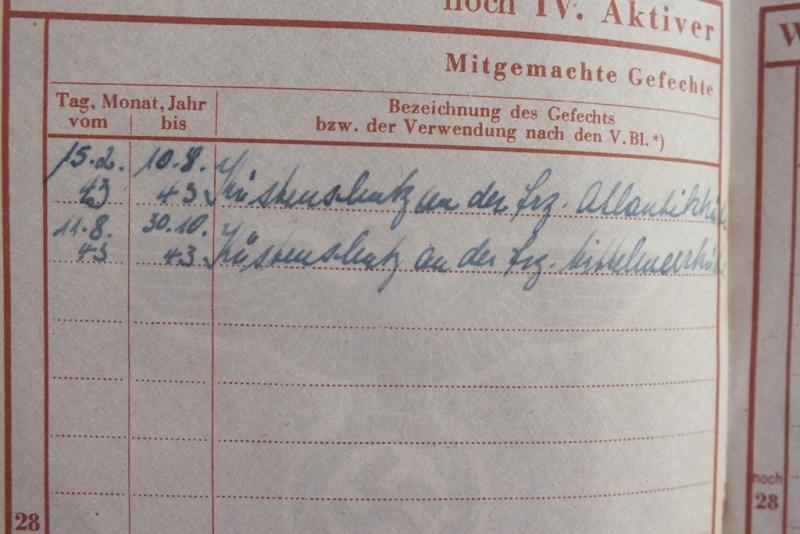 noch IV. Aktiver
Mitgemachte Gefechte
Tag, Monat, Jahr
vom bis
Bezeichnung des Gefechts
bzw. der Verwendung nach den V.Bl.*)
15.2. 10.8.
43 43 Küstenschutz an der frz. Atlantikküste
11.8. 30.10.
43 43 Küstenschutz an der frz. Mittelmeerküste
28
W
noch
28